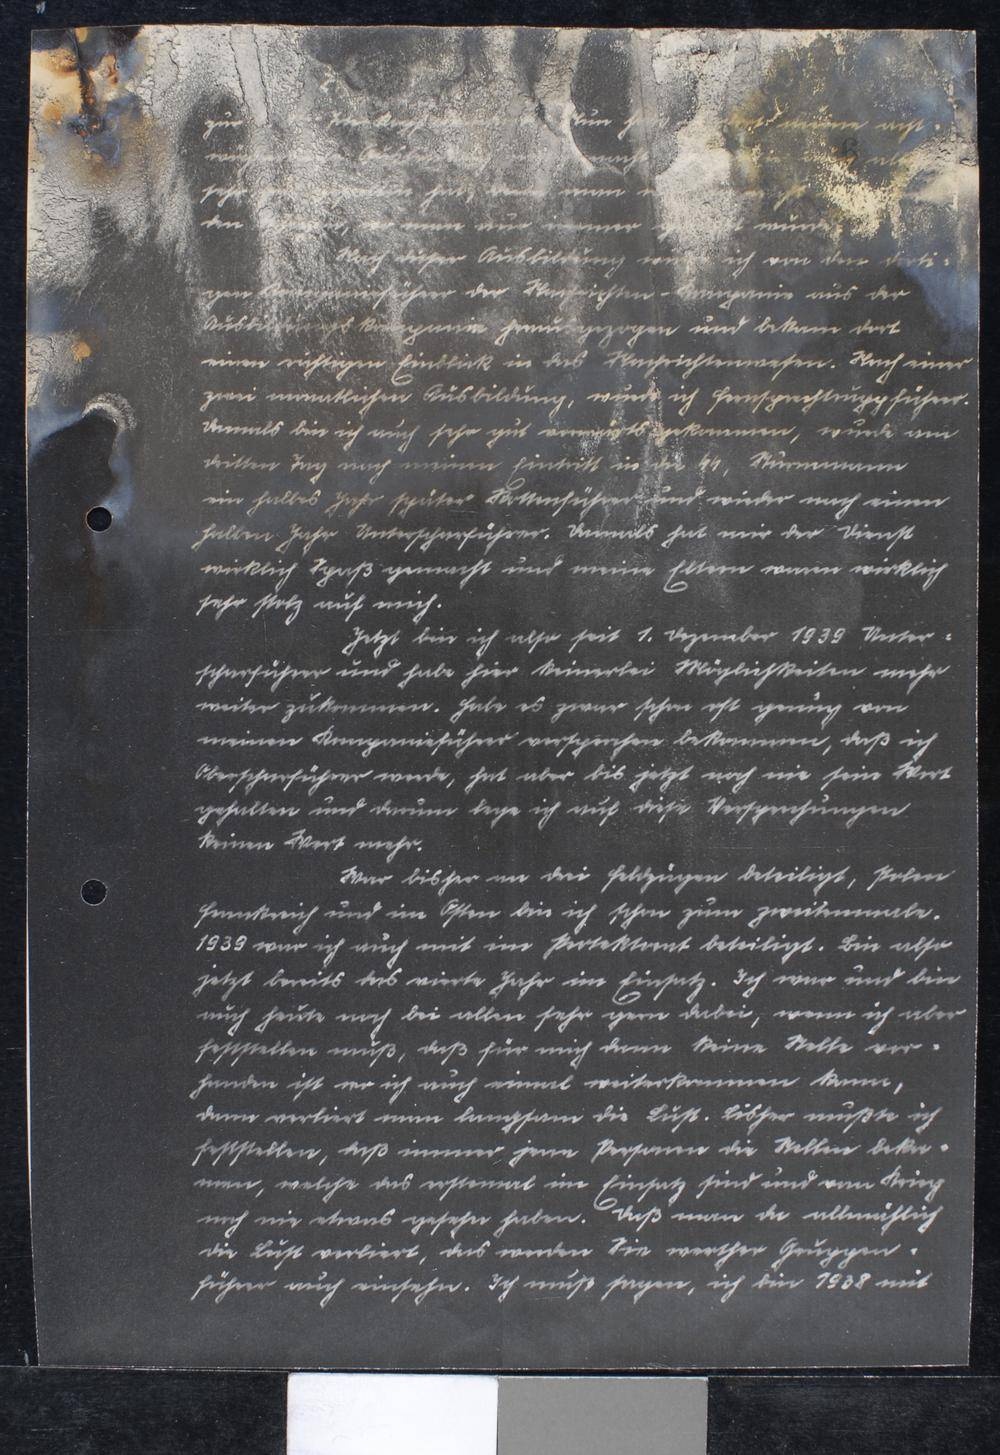 zur
Ausbildung
sehr
den nur immer
Nach dieser Ausbildung ich von den dorti-
gen Kompanieführer der Nachrichten-Kompanie aus der
Ausbildungskompanie herausgezogen und bekam dort
einen richtigen Einblick in das Nachrichtenwesen. Nach einer
zwei monatlichen Ausbildung, wurde ich Fernsprechtruppführer.
Damals bin ich auch sehr gut vorwärts gekommen, wurde am
dritten Tag nach meinem Eintritt in die SS, Sturmmann
ein halbes Jahr später Rottenführer und wieder nach einem
halben Jahr Unterscharführer. Damals hat mir der Dienst
wirklich Spaß gemacht und meine Eltern waren wirklich
sehr stolz auf mich.
Jetzt bin ich also seit 1. Dezember 1939 Unter-
scharführer und habe hier keinerlei Möglichkeiten mehr
weiter zukommen. Habe es zwar schon oft genug von
meinen Kompanieführer versprochen bekommen, daß ich
Oberscharführer werde, hat aber bis jetzt noch nie sein Wort
gehalten und darum lege ich auf diese Versprechungen
keinen Wert mehr.
War bisher an drei Feldzügen beteiligt, Polen
Frankreich und im Osten bin ich schon zum zweitenmale.
1939 war ich auch mit im Protektorat beteiligt. Bin also
jetzt bereits das vierte Jahr im Einsatz. Ich war und bin
auch heute noch bei allen sehr gern dabei, wenn ich aber
feststellen muß, daß für mich dann keine Stelle vor-
handen ist wo ich auch einmal weiterkommen kann,
dann verliert man langsam die Lust. Bisher mußte ich
feststellen, daß immer jene Personen die Stellen beka-
men, welche das erstemal im Einsatz sind und vom Krieg
noch nie etwas gesehn haben. Daß man da allmählich
die Lust verliert, das werden Sie werther Gruppen-
führer auch einsehn. Ich muß sagen, ich bin 1938 mit